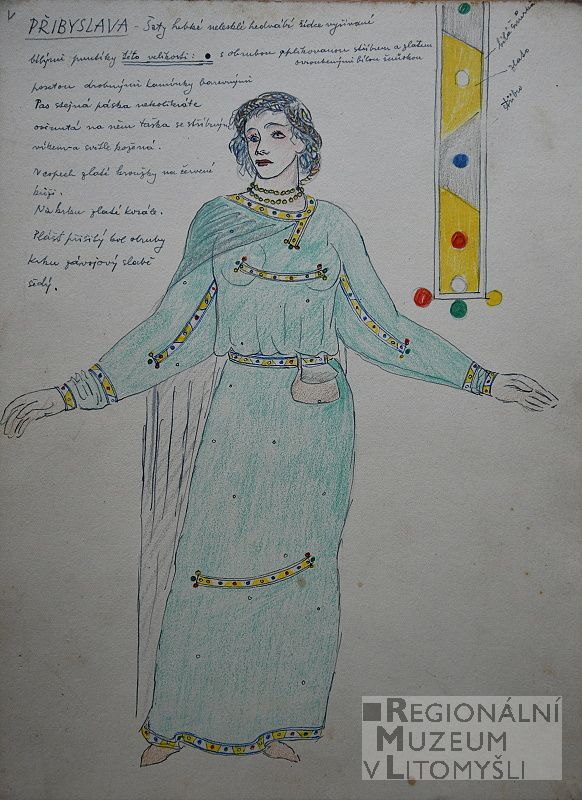 PŘIBYSLAVA - Šaty hebké nelesklé hedvábí řídce vyšívané
bílými puntíky této velikosti: s obrubou aplikovanou stříbrem a zlatem
ovroubenými bílou šňůrkou
posetou drobnými kamínky barevnými
Pas stejná páska několikráte
na něm taška se stříbrným
víkem a světle kožená.
V copech zlaté kroužky na červené
kůži.
Na krku zlaté korále.
Plášť přišitý kol obruby
krku závojový slabě
šedý.
bílá šňůrka
zlato
stříbro
REGIONÁLNÍ
MUZEUM
V LITOMYŠLI